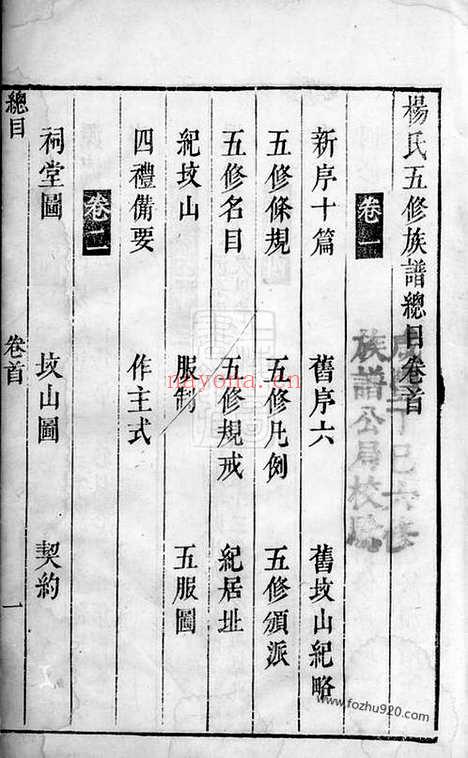 楊氏五修族譜總目卷首
卷一
新序十篇 舊序六 舊坟山紀略
五修條規 五修凡例 五修頒派
五修名目 五修規戒 紀居址
紀坟山 服制 五服圖
四禮備要 作主式
卷二
祠堂圖 坟山圖 契約
總目 卷首 一
族譜公局校
nayona.com
www.fozhu920.com